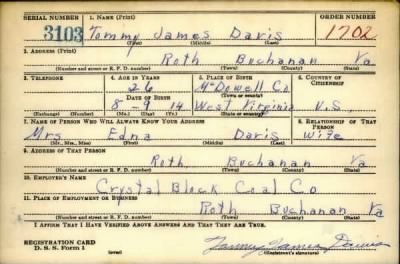 SERIAL NUMBER 1. NAME (Print) ORDER NUMBER
3103 Tommy James Davis 1702
(First) (Middle) (Last)
2. ADDRESS (Print)
Roth Buchanan Va
(Number and street or R. F. D. number) (Town) (County) (State)
3. TELEPHONE 4. AGE IN YEARS 5. PLACE OF BIRTH 6. COUNTRY OF CITIZENSHIP
26 McDowell Co
DATE OF BIRTH (Town or county)
8-9 14 West Virginia U.S.
(Exchange) (Number) (Mo.) (Day) (Yr.) (State or country)
7. NAME OF PERSON WHO WILL ALWAYS KNOW YOUR ADDRESS 8. RELATIONSHIP OF THAT PERSON
Mrs Edna Davis Wife
(Mr., Mrs., Miss) (First) (Middle) (Last)
9. ADDRESS OF THAT PERSON
Roth Buchanan Va
(Number and street or R. F. D. number) (Town) (County) (State)
10. EMPLOYER'S NAME
Crystal Block Coal Co
11. PLACE OF EMPLOYMENT OR BUSINESS
Roth Buchanan Va
(Number and street or R. F. D. number) (Town) (County) (State)
I AFFIRM THAT I HAVE VERIFIED ABOVE ANSWERS AND THAT THEY ARE TRUE.
REGISTRATION CARD
D. S. S. Form 1 (over) Tommy James Davis
(Registrant's signature)